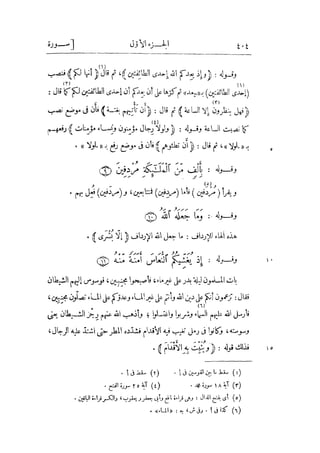 ٤٠٤ الجزء الأول [سورة
وقوله : ﴿ وإذ يعدكم الله إحدى الطائفتين ﴾، ثم قال : ﴿ أنها لكم ﴾ فنصب (١)
﴿ إحدى الطائفتين ﴾ بـ«يعد» ثم كرّها على أن يعدكم أن إحدى الطائفتين لكم كما قال : (٢)
﴿ فهل ينظرون إلا الساعة ﴾ ثم قال : ﴿ أن تأتيهم بغتة ﴾ فأن فى موضع نصب (٣)
كما نصبت الساعة وقوله : ﴿ ولولا رجال مؤمنون ونساء مؤمنات ﴾ رفعهم (٤)
٥ بـ«لولا»، ثم قال : ﴿ أن تطئوهم ﴾ فأن فى موضع رفع بـ«لولا» .
وقوله : بِأَلْفٍ مِّنَ ٱلْمَلَٰٓئِكَةِ مُرْدِفِينَ ﴿٩﴾
ويقرأ ﴿ مردفين ﴾ فأما ﴿ مردفين ﴾ فمتتابعين، و ﴿ مردفين ﴾ فُعِل بهم . (٥)
وقوله : وَمَا جَعَلَهُ ٱللَّهُ ﴿١٠﴾
هذه الهاء للإرداف : ما جعل الله الإرداف ﴿ إلا بشرى ﴾ .
١٠ وقوله : إِذْ يُغَشِّيكُمُ ٱلنُّعَاسَ أَمَنَةً مِّنْهُ ﴿١١﴾
بات المسلمون ليلة بدر على غير ماء، فأصبحوا مجنبين، فوسوس إليهم الشيطان
فقال : تزعمون أنكم على دين الله وأنتم على غير الماء وعدوكم على الماء تصلون مجنبين،
فأرسل الله عليهم السماء وشربوا واغتسلوا ؛ وأذهب الله عنهم رجز الشيطان يعنى (٦)
وسوسته، وكانوا فى رمل تغيب فيه الأقدام فشدده المطر حتى اشتد عليه الرجال،
١٥ فذلك قوله : ﴿ ويثبت به الأقدام ﴾ .
(١) سقط ما بين القوسين فى أ . (٢) سقط فى أ .
(٣) آية ١٨ سورة محمد . (٤) آية ٢٥ سورة الفتح .
(٥) أى بفتح الدال : وهى قراءة نافع وأبى جعفر ويعقوب، والكسر قراءة الباقين .
(٦) كذا فى أ . وفى ش، جـ : «الماء» .